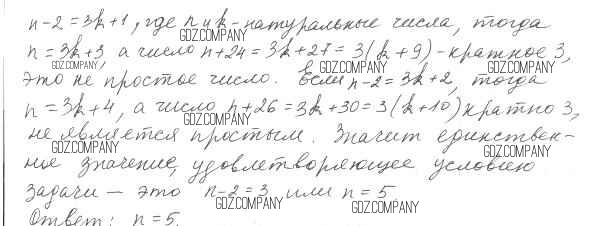 n-2=3k+1, где n и k - натуральные числа, тогда
GDZ.COMPANY
n=3k+3, а число n+24=3k+27=3(k+9) - кратное 3,
GDZ.COMPANY GDZ.COMPANY GDZ.COMPANY
это не простое число. Если n-2=3k+2, тогда
n=3k+4, а число n+26=3k+30=3(k+10) кратно 3,
GDZ.COMPANY
не является простым. Значит единствен-
GDZ.COMPANY GDZ.COMPANY
ное значение, удовлетворяющее условию
задачи - это n-2=3 или n=5
GDZ.COMPANY GDZ.COMPANY
Ответ: n=5.